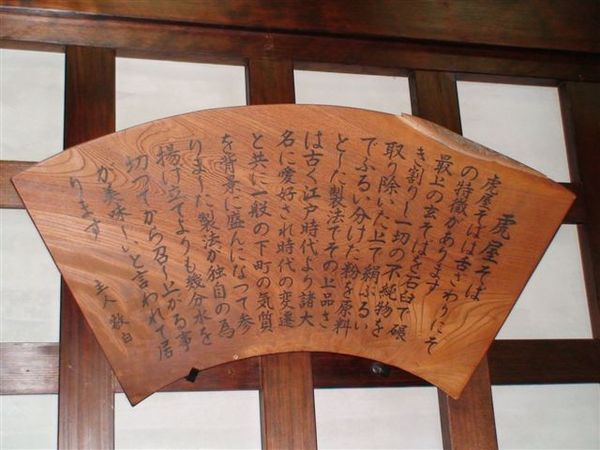 虎屋そば
虎屋そばは舌ざわりにそ
の特徴があります
最上の玄そばを石臼で碾
き割り一切の不純物を
取り除いた上で絹ぶるい
でふるい分けた粉を原料
とした製法でその上品さ
は古く江戸時代より諸大
名に愛好され時代の変遷
と共に一般の下町の気質
を背景に盛んになつて参
りました製法が独自の為
揚げ立てよりも幾分水を
切つてから召し上がる事
が美味しいと言われて居
ります
主人 敬白